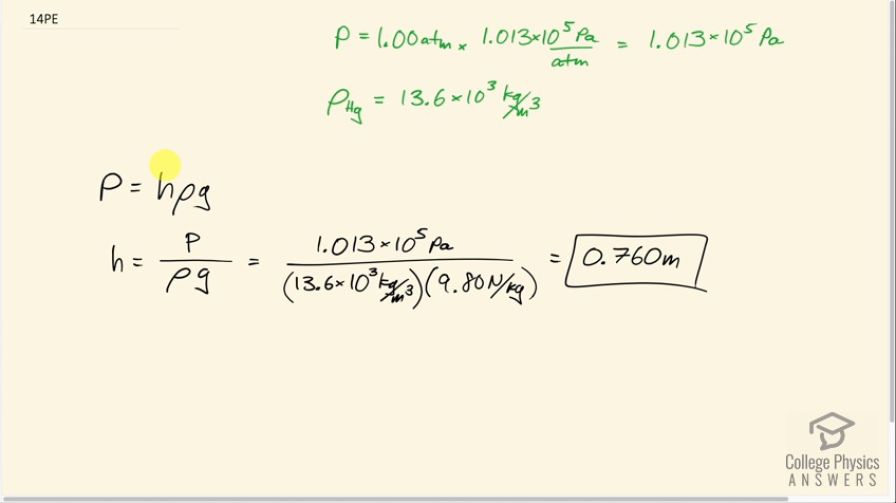 14PE
P = 1.00 atm × 1.013×10⁵ Pa/atm = 1.013×10⁵ Pa
ρHg = 13.6×10³ kg/m³
P = hρg
h = P/ρg = 1.013×10⁵ Pa/(13.6×10³ kg/m³)(9.80 N/kg) = 0.760 m
College Physics
ANSWERS